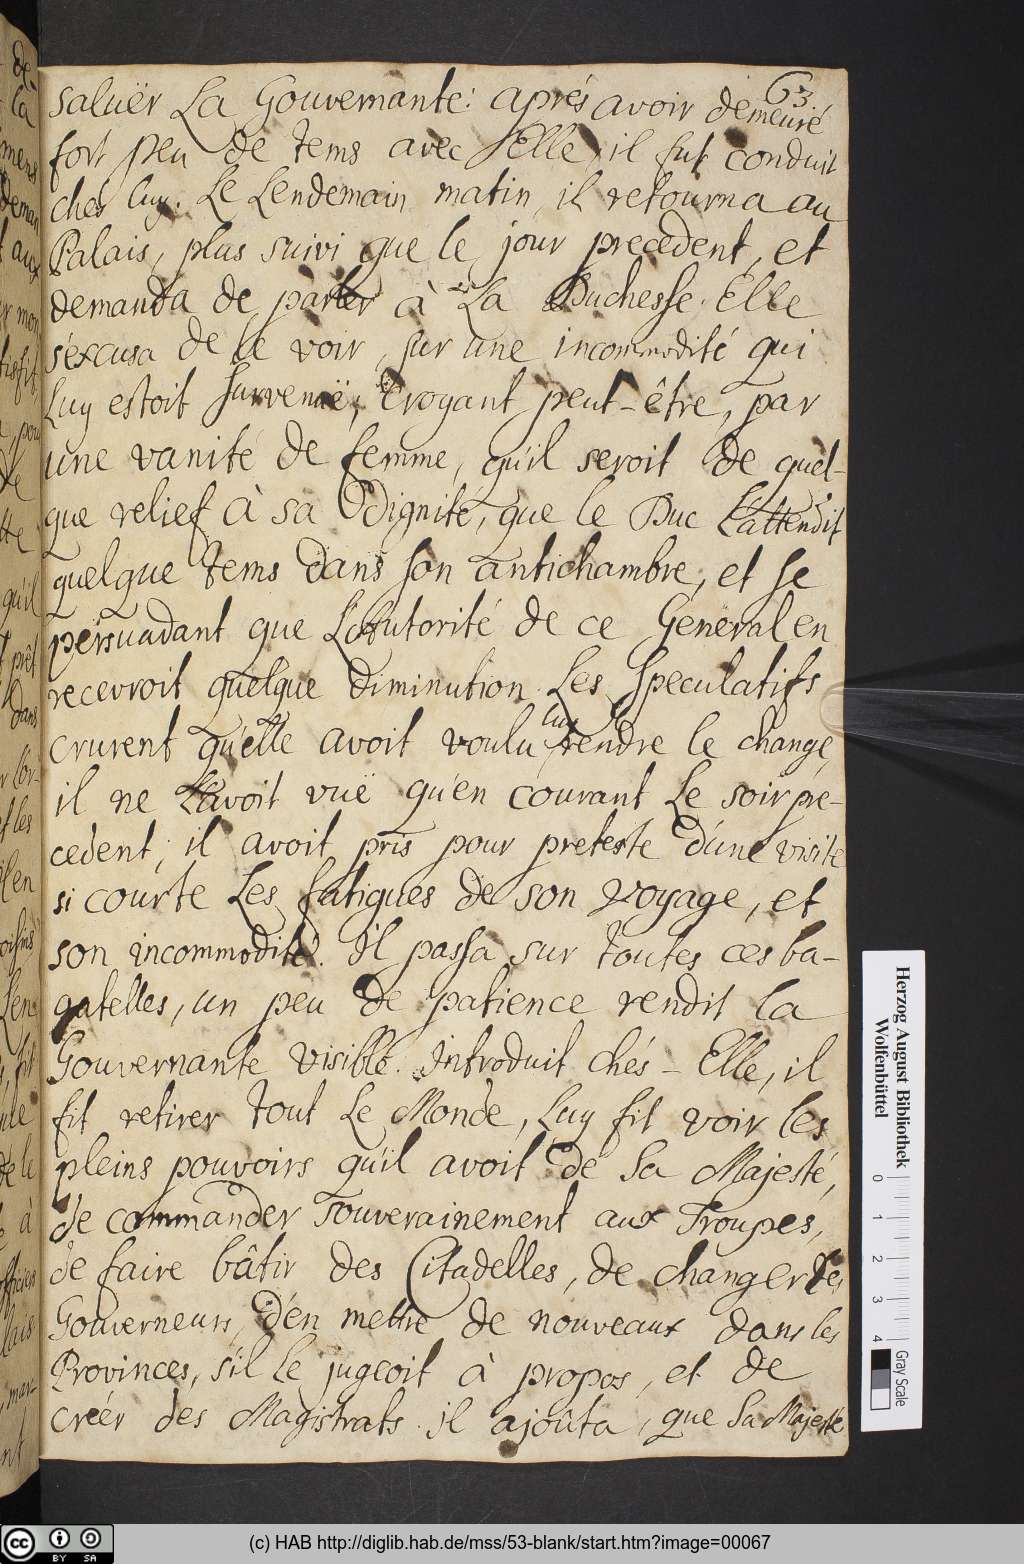 63
saluër La Gouvernante: aprés avoir demeuré
fort peu de tems avec Elle, il fut conduit
chés luy. Le Lendemain matin, il retourna au
Palais, plus suivi que le jour precedent, et
demanda de parler à La Duchesse. Elle
s'éxcusa de le voir, sur une incommodité qui
Luy estoit survenuë, croyant peut-être, par
une vanité de femme, qu'il seroit de quel-
que relief à sa Dignité, que le Duc L'attendit
quelque tems dans son antichambre, et se
persuadant que L'Autorité de ce Genéral en
recevroit quelque diminution. Les Speculatifs
crurent qu'elle avoit voulu luy rendre le change,
il ne L'avoit vuë qu'en courant Le soir pre-
cedent; il avoit pris pour pretexte d'une visite
si courte Les fatigues de son voyage, et
son incommodité. Il passa sur toutes ces ba-
gatelles, un peu de patience rendit la
Gouvernante visible. introduit chés-Elle, il
fit retirer tout Le Monde, Luy fit voir les
pleins pouvoirs qu'il avoit de Sa Majesté,
de commander souverainement aux Troupes,
de faire bâtir des Citadelles, de changer les
Gouverneurs, d'en mettre de nouveaux dans les
Provinces, s'il Le jugeoit à propos, et de
creér des Magistrats. il ajoûta, que Sa Majesté
Herzog August Bibliothek
Wolfenbüttel
0 1 2 3 4
Gray Scale
cc BY SA
(c) HAB http://diglib.hab.de/mss/53-blank/start.htm?image=00067